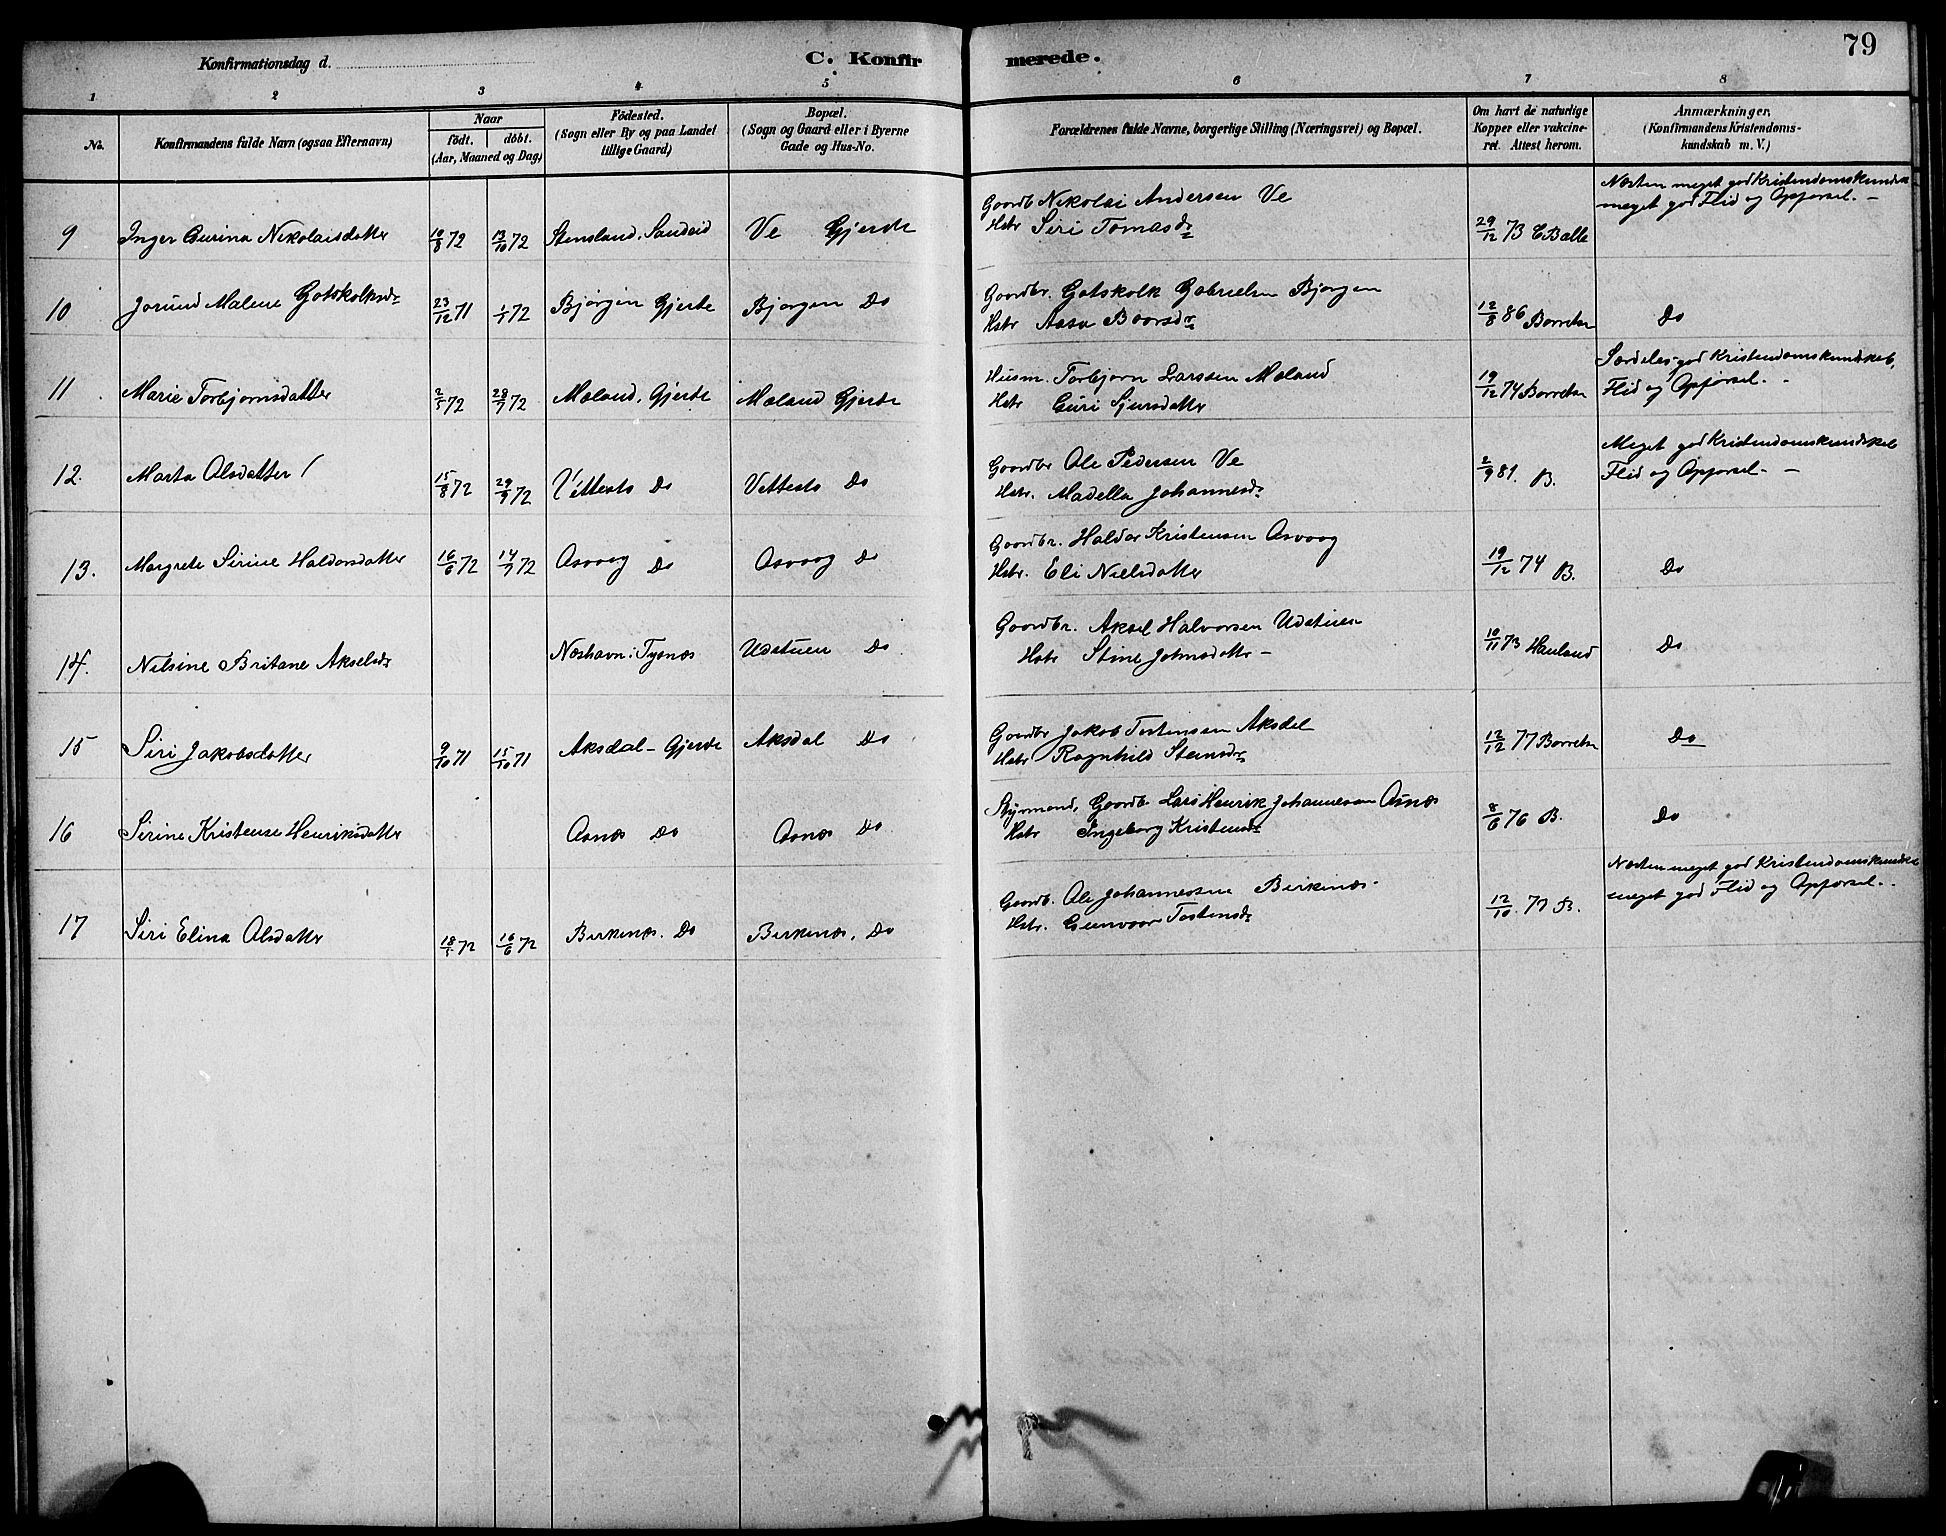 79
Konfirmationsdag d.
C. Konfirmerede.
1 2 3 4 5 6 7 8
No.
Konfirmandens fulde Navn (ogsaa Efternavn)
Naar
født. døbt.
(Aar, Maaned og Dag)
Fødested.
(Sogn eller By og paa Landet
tillige Gaard)
Bopæl.
(Sogn og Gaard eller i Byerne
Gade og Hus-No.
Forældrenes fulde Navne, borgerlige Stilling (Næringsvei) og Bopæl.
Om havt de naturlige
Kopper eller vakcine-
ret. Attest herom.
Anmærkninger.
(Konfirmandens Kristendoms-
kundskab m. V.)
9 Inger Gurina Nikolaisdatter 10/8 72 13/10 72 Stensland, Sandeid Ve Gjerde
Gaardb Nikolai Andersen Ve
Hstr Siri Tomasdr
29/12 73 E Balle
Næsten meget god Kristendomskundsk
meget god Flid og Opførsel. –
10 Jorund Malene Gotskolksdr 23/12 71 1/1 72 Bjørgen Gjerde Bjørgen Do
Gaardbr. Gotskolk Gabrielsen Bjørgen
Hstr Aasa Baarsdr
12/8 86 Borretsen
Do
11 Marie Torbjørnsdatter 2/5 72 28/7 72 Mæland, Gjerde Mæland Gjerde
Husm. Torbjørn Larssen Mæland
Hstr Guri Sjursdatter
19/12 74 Borretsen
Særdeles god Kristendomskundskab,
Flid og Opførsel. –
12. Marta Olsdatter 15/8 72 29/9 72 Vettestø Do Vettestø Do
Gaardbr Ole Pedersen Ve
Hstr. Madella Johannesdr
2/9 81. B.
Meget god Kristendomskundskab
Flid og Opførsel. –
13. Margrete Sirine Haldorsdatter 16/6 72 14/7 72 Asvaag Do Asvaag Do
Gaardbr. Haldor Kristensen Asvaag
Hstr. Eli Nielsdatter
19/12 74 B.
Do
14. Nilsine Britane Akselsdr Næshavn i Tysnæs Udstuen Do
Gaardbr. Aksel Halvorsen Udstuen
Hstr Stine Johnsdatter –
10/11 73 Hauland
Do
15 Siri Jakobsdatter 9/10 71 15/10 71 Aksdal – Gjerde Aksdal Do
Gaardbr Jakob Tostensen Aksdal
Hstr Ragnhild Stensdr
12/12 77 Borretsen
Do
16 Sirine Kristense Henriksdatter Asnæs Do Asnæs Do
Styrmand, Gaardb. Lars Henrik Johannessen Asnæs
Hstr Ingeborg Kristensdr
8/6 76 B.
Do
17 Siri Elina Olsdatter 18/5 72 16/6 72 Birkenæs. Do Birkenæs, Do
Gaardb. Ole Johannessen Birkenæs.
Hstr. Gunvaar Tostensdr
12/10. 77 B.
Næsten meget god Kristendomskundsk
meget god Flid og Opførsel.